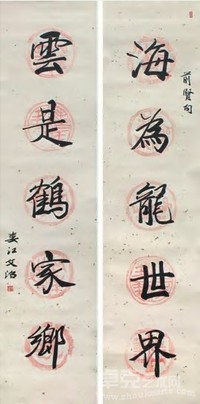 前賢句
海為龍世界
雲是鶴家鄉
婁江文治